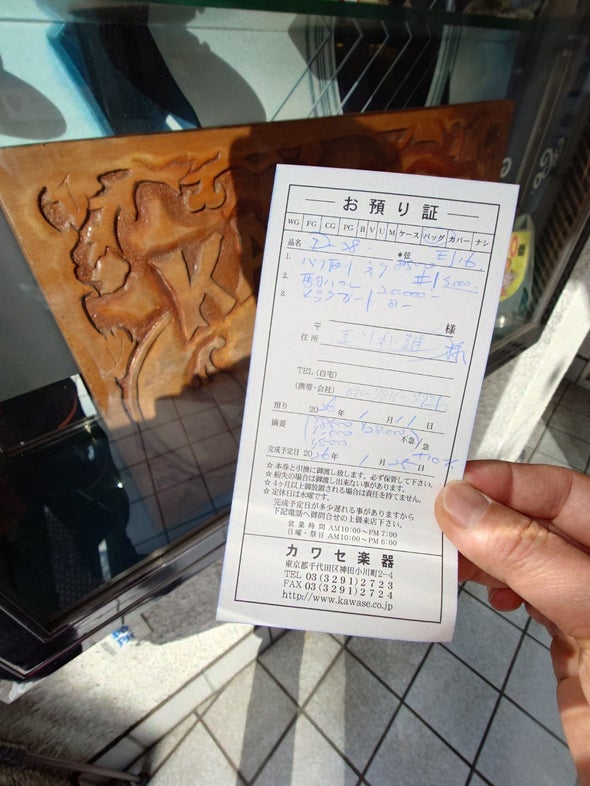 お預り証
WG FG CG PG B V U M ケース バッグ カバー ナシ
品名 D-28 *弦
1.
2. 20,000-
3. ピックガード
〒 様
住所 様
TEL(自宅)
(携帯・会社)
預り 2026年 1月 11日
摘要 不急 急
完成予定日 2026年 1月 日
☆本券と引換に御渡し致します。必ず保管して下さい。
☆紛失の場合は御渡し出来ない事があります。
☆4ヶ月以上御放置される場合は責任を持てません。
☆定休日は水曜です。
完成予定日が多少遅れる事がありますから
下記電話へ御問合せの上御来店下さい。
営業時間 AM10:00〜PM7:00
日曜・祭日 AM10:00〜PM6:00
カワセ楽器
東京都千代田区神田小川町2-4
TEL 03(3291)2723
FAX 03(3291)2724
http://www.kawase.co.jp
K